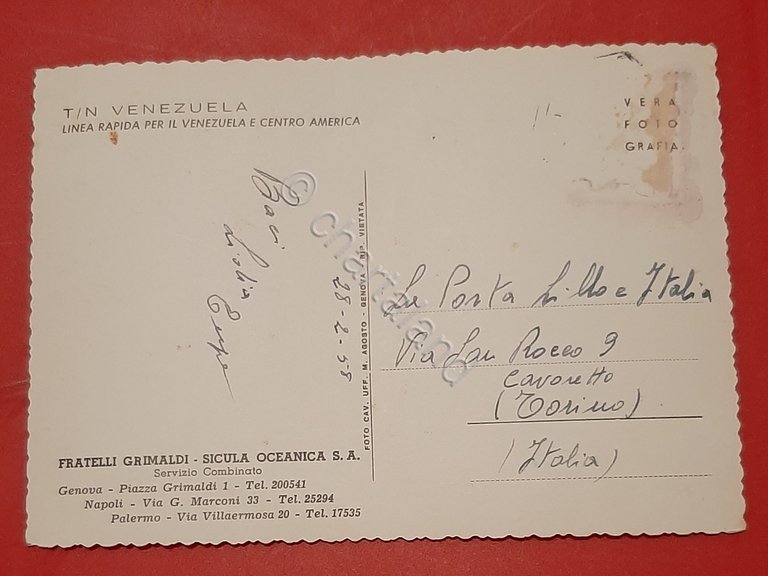 T/N VENEZUELA
LINEA RAPIDA PER IL VENEZUELA E CENTRO AMERICA
VERA
FOTO
GRAFIA
Baci
28-2-58
FOTO CAV. UFF. M. AGOSTO - GENOVA - RIP. VIETATA
La Porta Lillo e Italia
Via San Rocco 9
Cavoretto
(Torino)
(Italia)
FRATELLI GRIMALDI - SICULA OCEANICA S. A.
Servizio Combinato
Genova - Piazza Grimaldi 1 - Tel. 200541
Napoli - Via G. Marconi 33 - Tel. 25294
Palermo - Via Villaermosa 20 - Tel. 17535
© chartaland